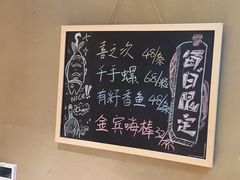 喜之次 48/条
千手螺 68/粒
有籽香鱼 48/条
金宾嗨棒 32/杯
每日限定
NICE!